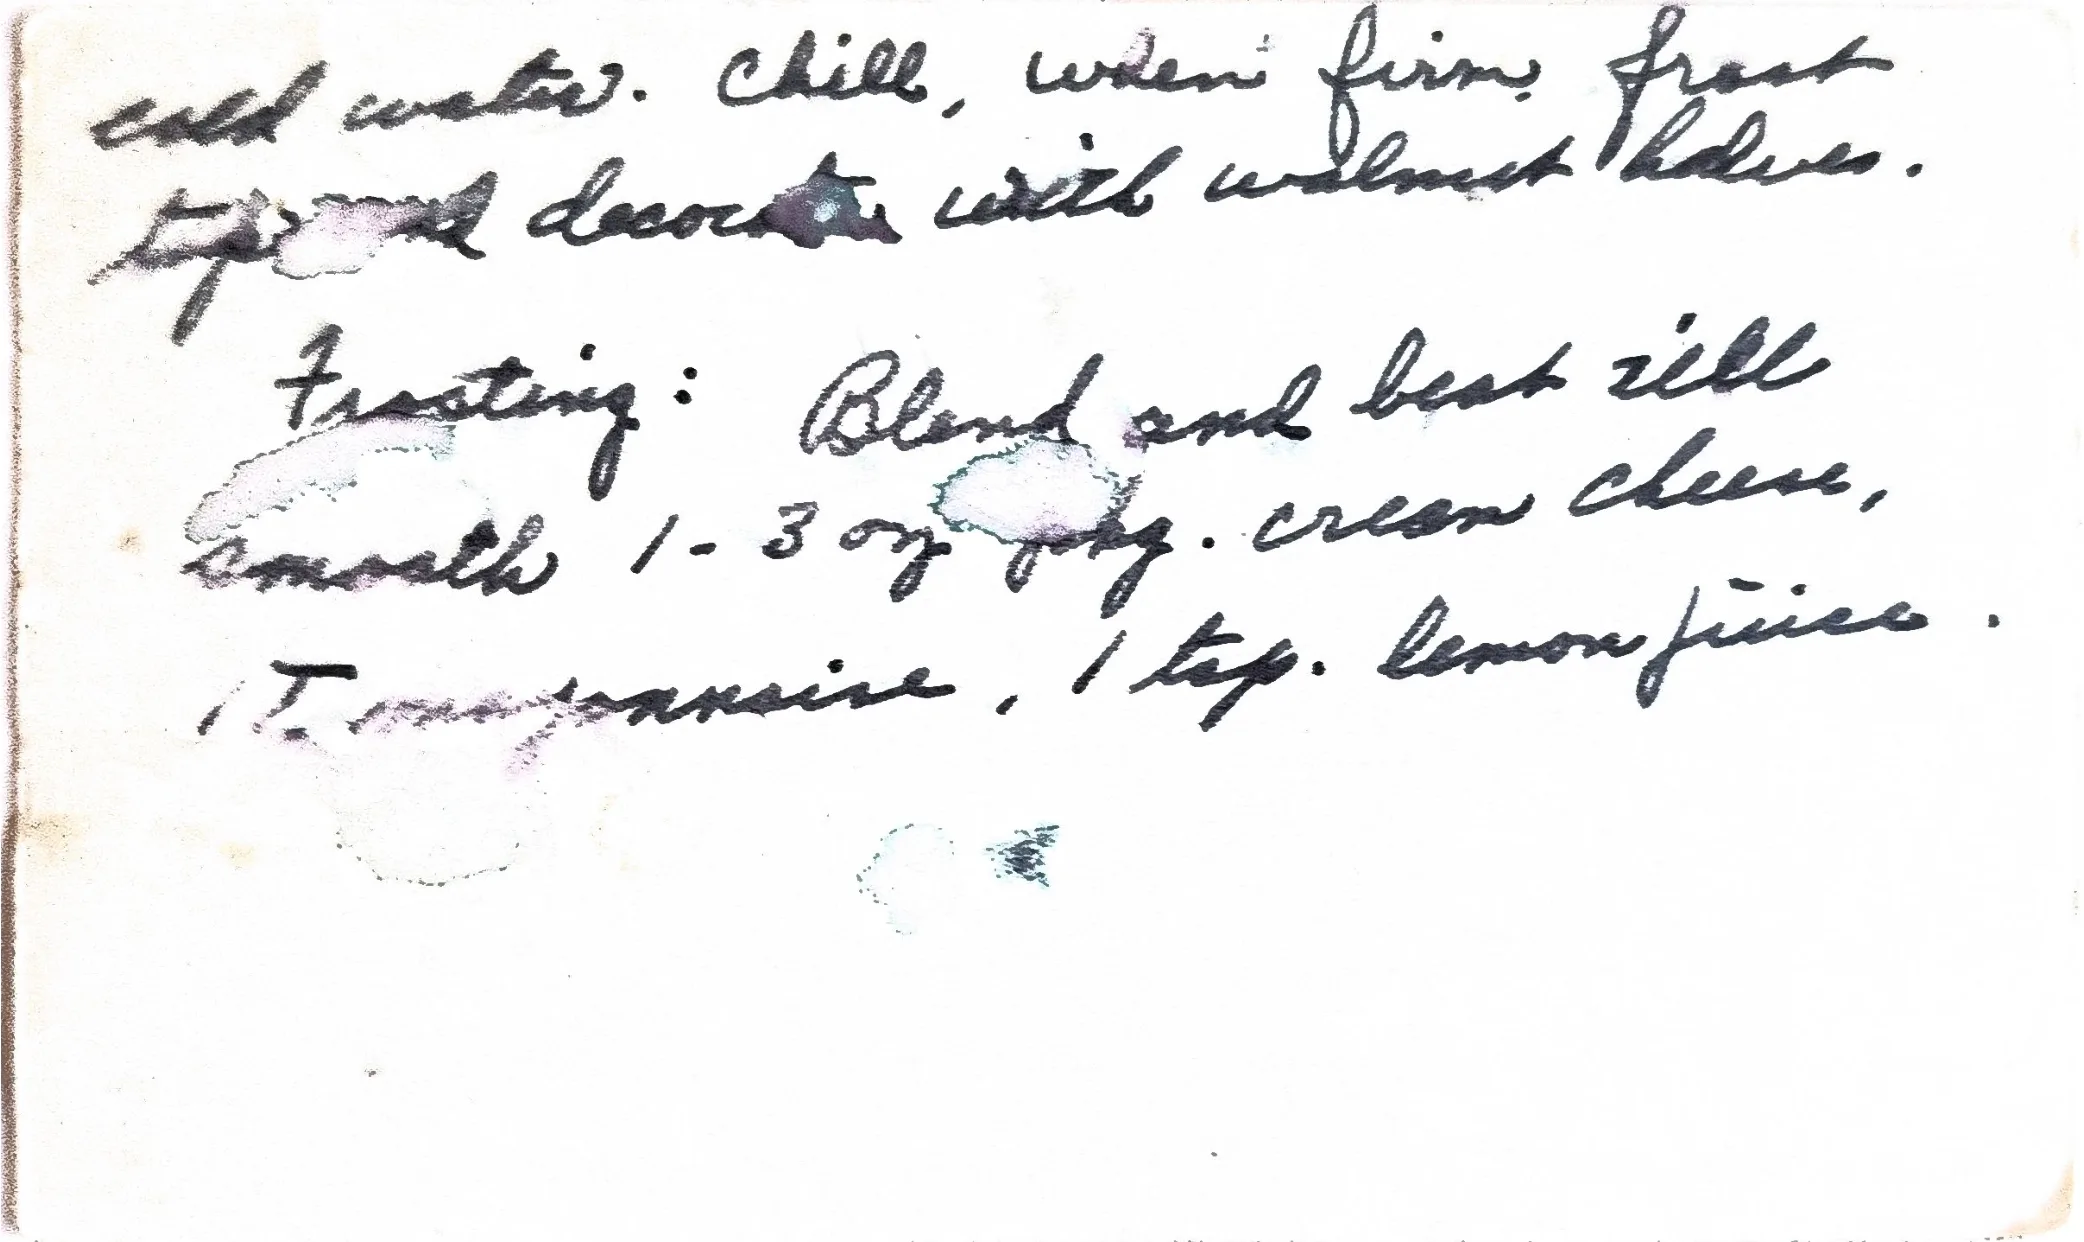 cold water. Chill, when firm, frost
top and decorate with walnut halves.
Frosting: Blend and beat till
smooth 1 - 3 oz pkg. cream cheese,
1 T mayonnaise, 1 tsp. lemon juice.